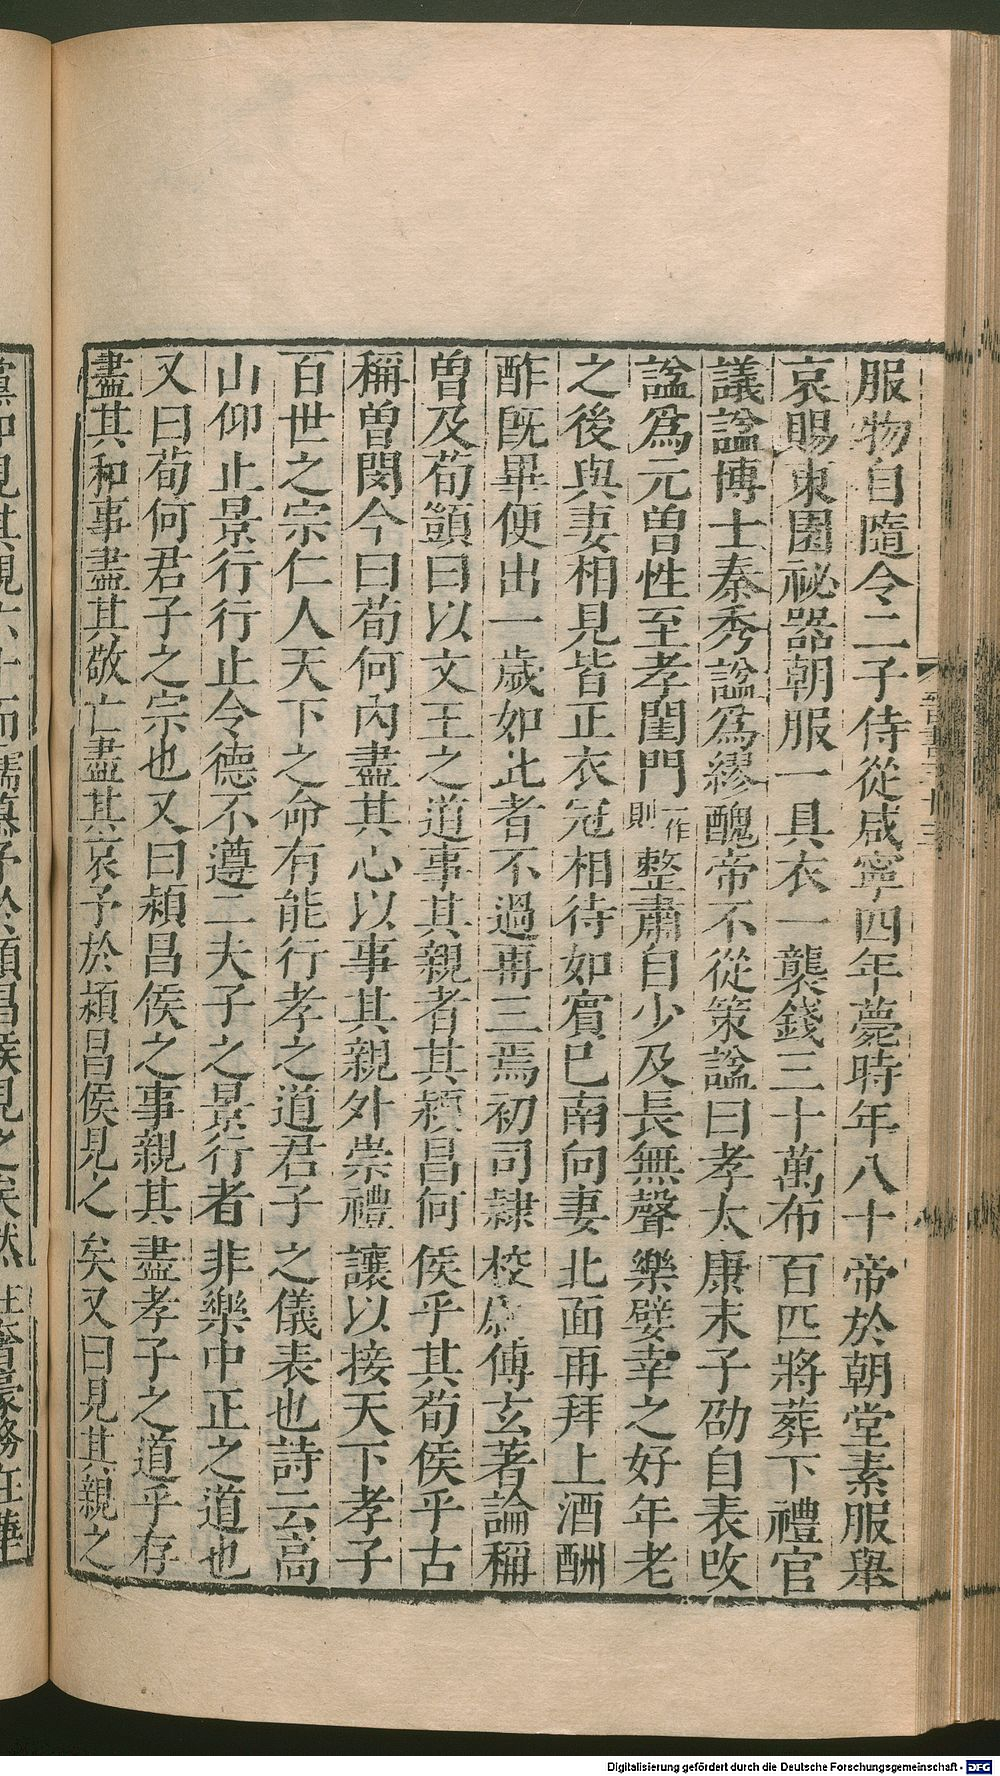 服物自隨令二子侍從咸寧四年薨時年八十帝於朝堂素服舉
哀賜東園祕器朝服一具衣一襲錢三十萬布百匹將葬下禮官
議諡博士秦秀諡爲繆醜帝不從策諡曰孝太康末子劭自表改
諡爲元曽性至孝閨門一作則整肅自少及長無聲樂嬖幸之好年老
之後與妻相見皆正衣冠相待如賓已南向妻北面再拜上酒酬
酢旣畢便出一歲如此者不過再三焉初司隸校尉傅玄著論稱
曽及荀顗曰以文王之道事其親者其潁昌何侯乎其荀侯乎古
稱曽閔今曰荀何內盡其心以事其親外崇禮讓以接天下孝子
百世之宗仁人天下之命有能行孝之道君子之儀表也詩云高
山仰止景行行止令德不遵二夫子之景行者非樂中正之道也
又曰荀何君子之宗也又曰潁昌侯之事親其盡孝子之道乎存
盡其和事盡其敬亡盡其哀予於潁昌侯見之矣又曰見其親之
黨如見其親六十而孺慕予於潁昌侯見之矣然
Digitalisierung gefördert durch die Deutsche Forschungsgemeinschaft - DFG